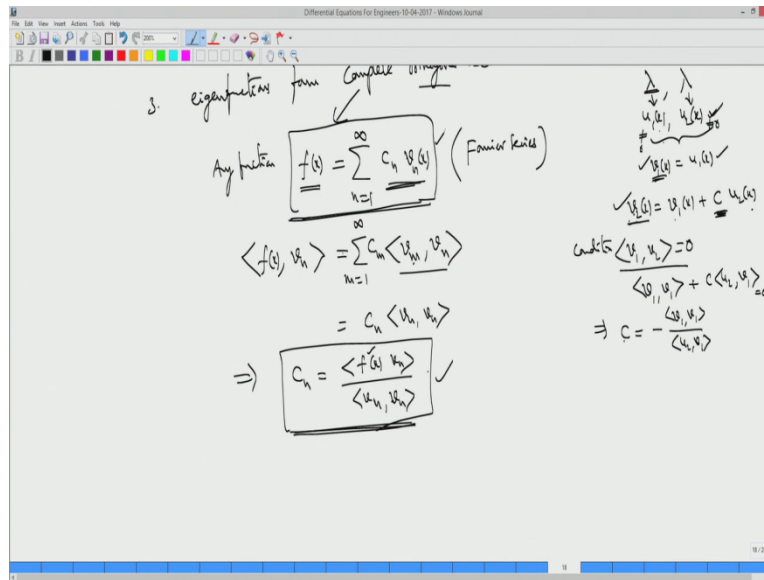 Differential Equations For Engineers-10-04-2017 - Windows Journal
File Edit View Insert Actions Tools Help
200%
B I
3. eigenfunctions form Complete orthogonal
Any function f(x) = ∑_{n=1}^{∞} C_n v_n(x) (Fourier Series)
<f(x), v_n> = ∑_{m=1}^{∞} C_m <v_m, v_n>
= C_n <v_n, v_n>
⇒ C_n = <f(x) v_n> / <v_n, v_n>
λ, λ
u_1(x), u_2(x)
v_1(x) = u_1(x)
v_2(x) = v_1(x) + C u_2(x)
<v_1, v_2> = 0
<v_1, v_1> + C <u_2, v_1> = 0
⇒ C = - <v_1, v_1> / <u_2, v_1>
18 / 2
18